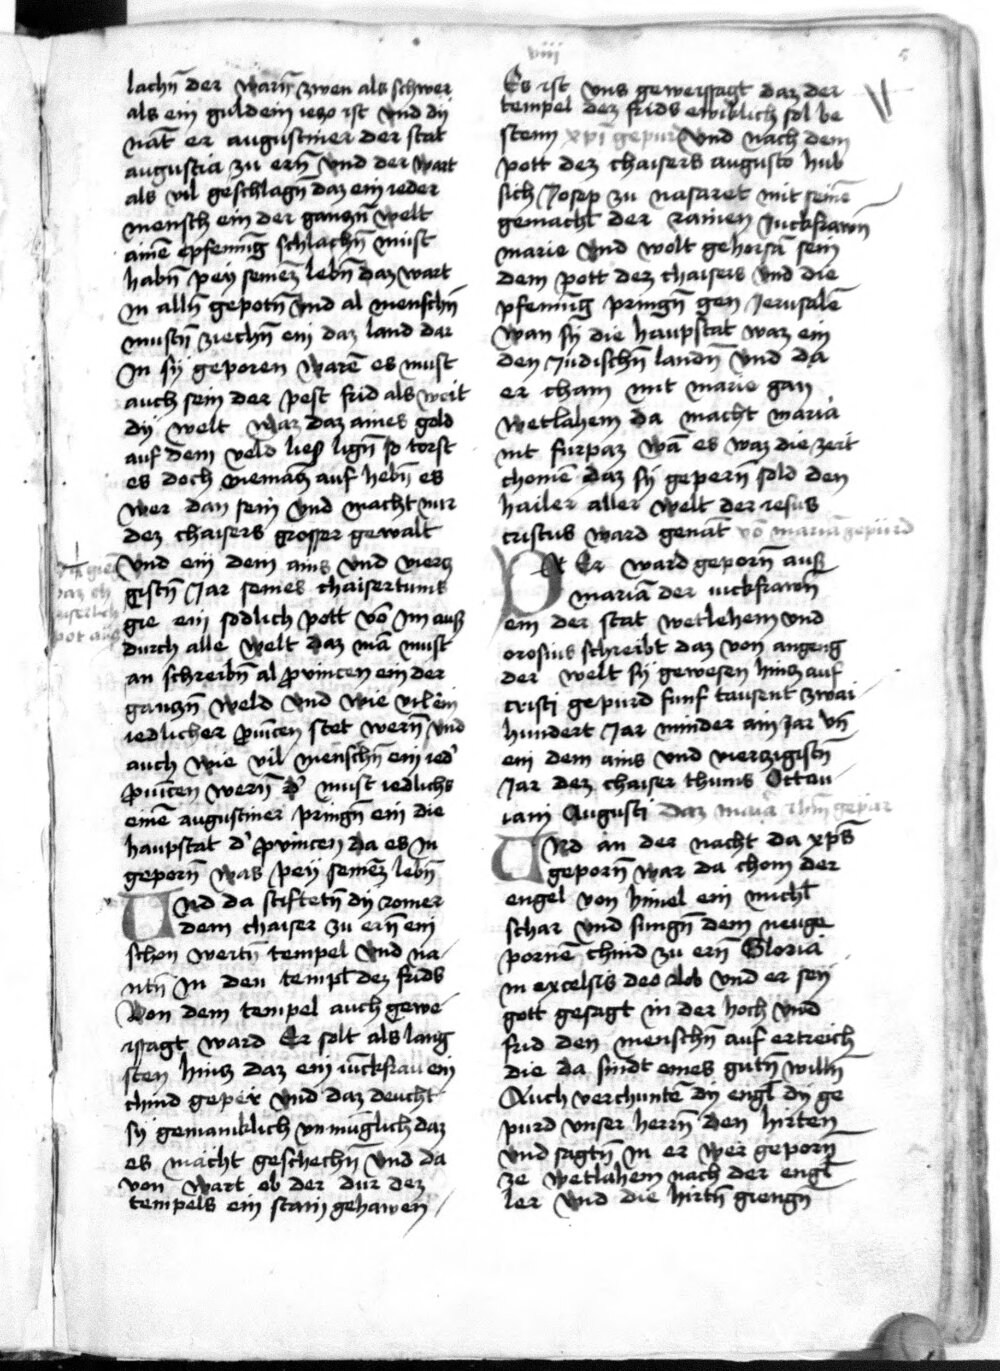 viii
5
lachn̄ der warn̄ zwen als schwer
als ein guldein ieʒo ist vnd dy
nāt er augustiner der stat
augustia zu ern̄ vnd der wart
als vil geschlagn̄ daz ein ieder
mensch ein der ganczn̄ welt
ainē pfennīg schlachn̄ müst
habn̄ pey seinez lebn̄ daz wart
in alln̄ gepotn̄ vnd al menschn̄
mustn̄ ziechn̄ ein daz land dar
in sy geporen warē es must
auch sein der pest frid als weit
dy welt waz daz aines gold
auf dem veld ließ lign̄ so torst
es doch niemāz auf hebn̄ es
wer dan sein vnd macht nur
dez chaisers grosser gewalt
vnd ein dem ains vnd vierz
gistn̄ Jar seines chaisertums
gie ein sodlich pott vō Im auß
durch alle welt daz mā must
an schreibn̄ al prouincen ein der
ganczn̄ weld vnd wie vil ein
iedlicher prouīcen stet wern̄ vnd
auch wie vil menschn̄ ein ied'
prouīcen wern̄ d' must iedlichs
einē augustiner pringn̄ ein die
haupstat d' prouincen da es in
geporn̄ was pey seinez lebn̄
Vnd da stiftetn̄ dy romer
dem chaiser zu ern̄ ein
schon wertn̄ tempel vnd na
ntn̄ In den templ dez frids
Von dem tempel auch gewe
issagt ward Er solt als lang
sten hincz daz ein iūckfrau ein
chind geper vnd daz deucht
sy gemaniklich vnmuglich daz
es macht geschechn̄ vnd da
von wart ob der dur dez
tempels ein stain gehawen
Es ist vns geweissagt daz der
tempel dez frids ewiklich sol be
stenn xpi gepurd vnd nach dem
pott dez chaisers augusto hub
sich Josep zu nasaret mit seinē
gemachl der rainen Juckfrawn̄
marie vnd wolt gehorsā sein
dem pott dez chaisers vnd die
pfennīg pringn̄ gen Jerusalē
wan sy die haupstat waz ein
den Judischn̄ landn̄ vnd da
er cham mit marie gan
wetlahem da macht maria
nit furpaz wā es waz die zeit
chomē daz sy gepern̄ sold den
hailer aller welt der iesus
cristus ward genāt vō mariā gepürd
Da Er ward geporn̄ auß
mariā der iuckfrawn̄
ein der stat wetlehem vnd
orosius schreibt daz von angeng
der welt sy gewesen hincz auf
cristi gepurd funf tausent zwai
hundert Jar minder ain Jar vn̄
ein dem ains vnd vierzigistn̄
Jar dez chaiser thums Octau
iani Augusti
Vnd an der nacht da xp̄s
geporn̄ war da chom der
engel von himel ein michl
schar vnd sungn̄ dem neuge
pornē chind zu ern̄ Gloria
in excelsis deo lob vnd er sey
gott gesagt in der hoch vnd
frid den menschn̄ auf ertreich
die da sindt eines gutn̄ willn̄
Auch verchuntē dy engl dy ge
purd vnser herrn̄ den hirten
vnd sagtn̄ in er wer geporn̄
ze wetlahem nach der engl
ler vnd die hirtn̄ giengn̄